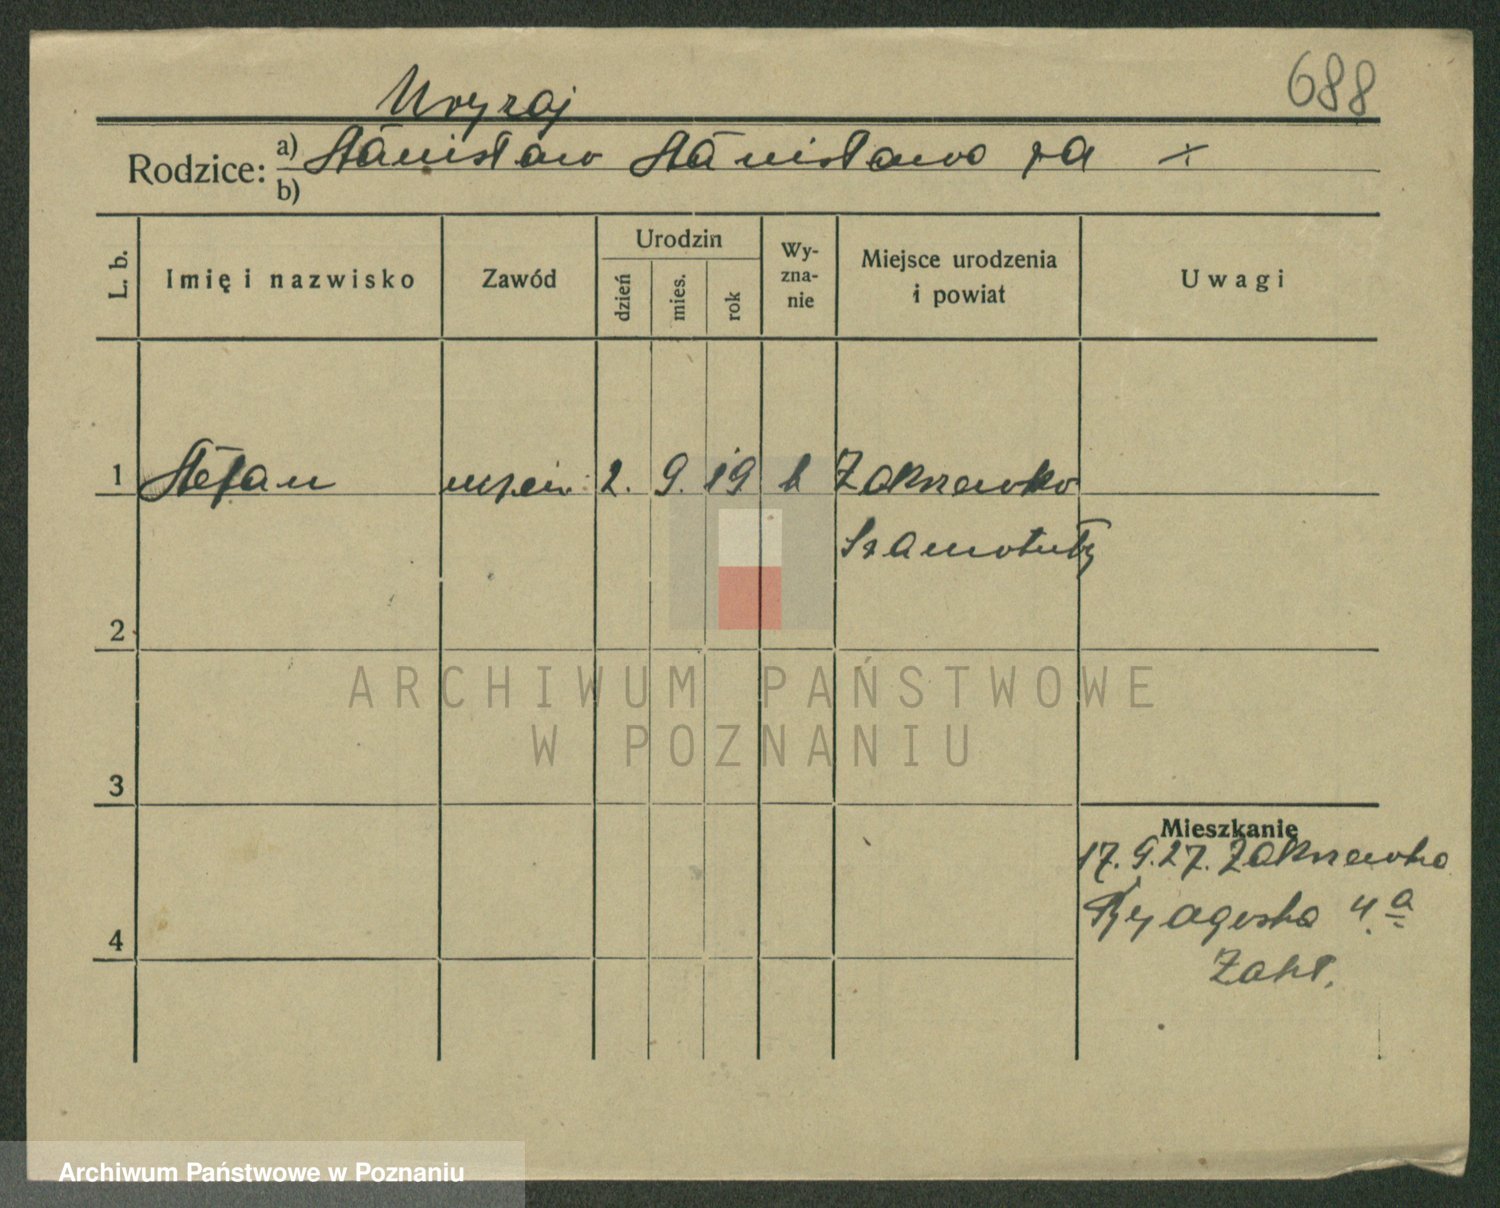 688
Rodzice: a) Stanisław Stanisława
b)
L. b.
Imię i nazwisko
Zawód
Urodzin
dzień
mies.
rok
Wy-
zna-
nie
Miejsce urodzenia
i powiat
Uwagi
1 Stefan uczeń 2. 9. 19 k Zakrzewko
Szamotuły
2
3
4
Mieszkanie
17.9.27. Zakrzewko
4a
Zakł.
ARCHIWUM PAŃSTWOWE
W POZNANIU
Archiwum Państwowe w Poznaniu